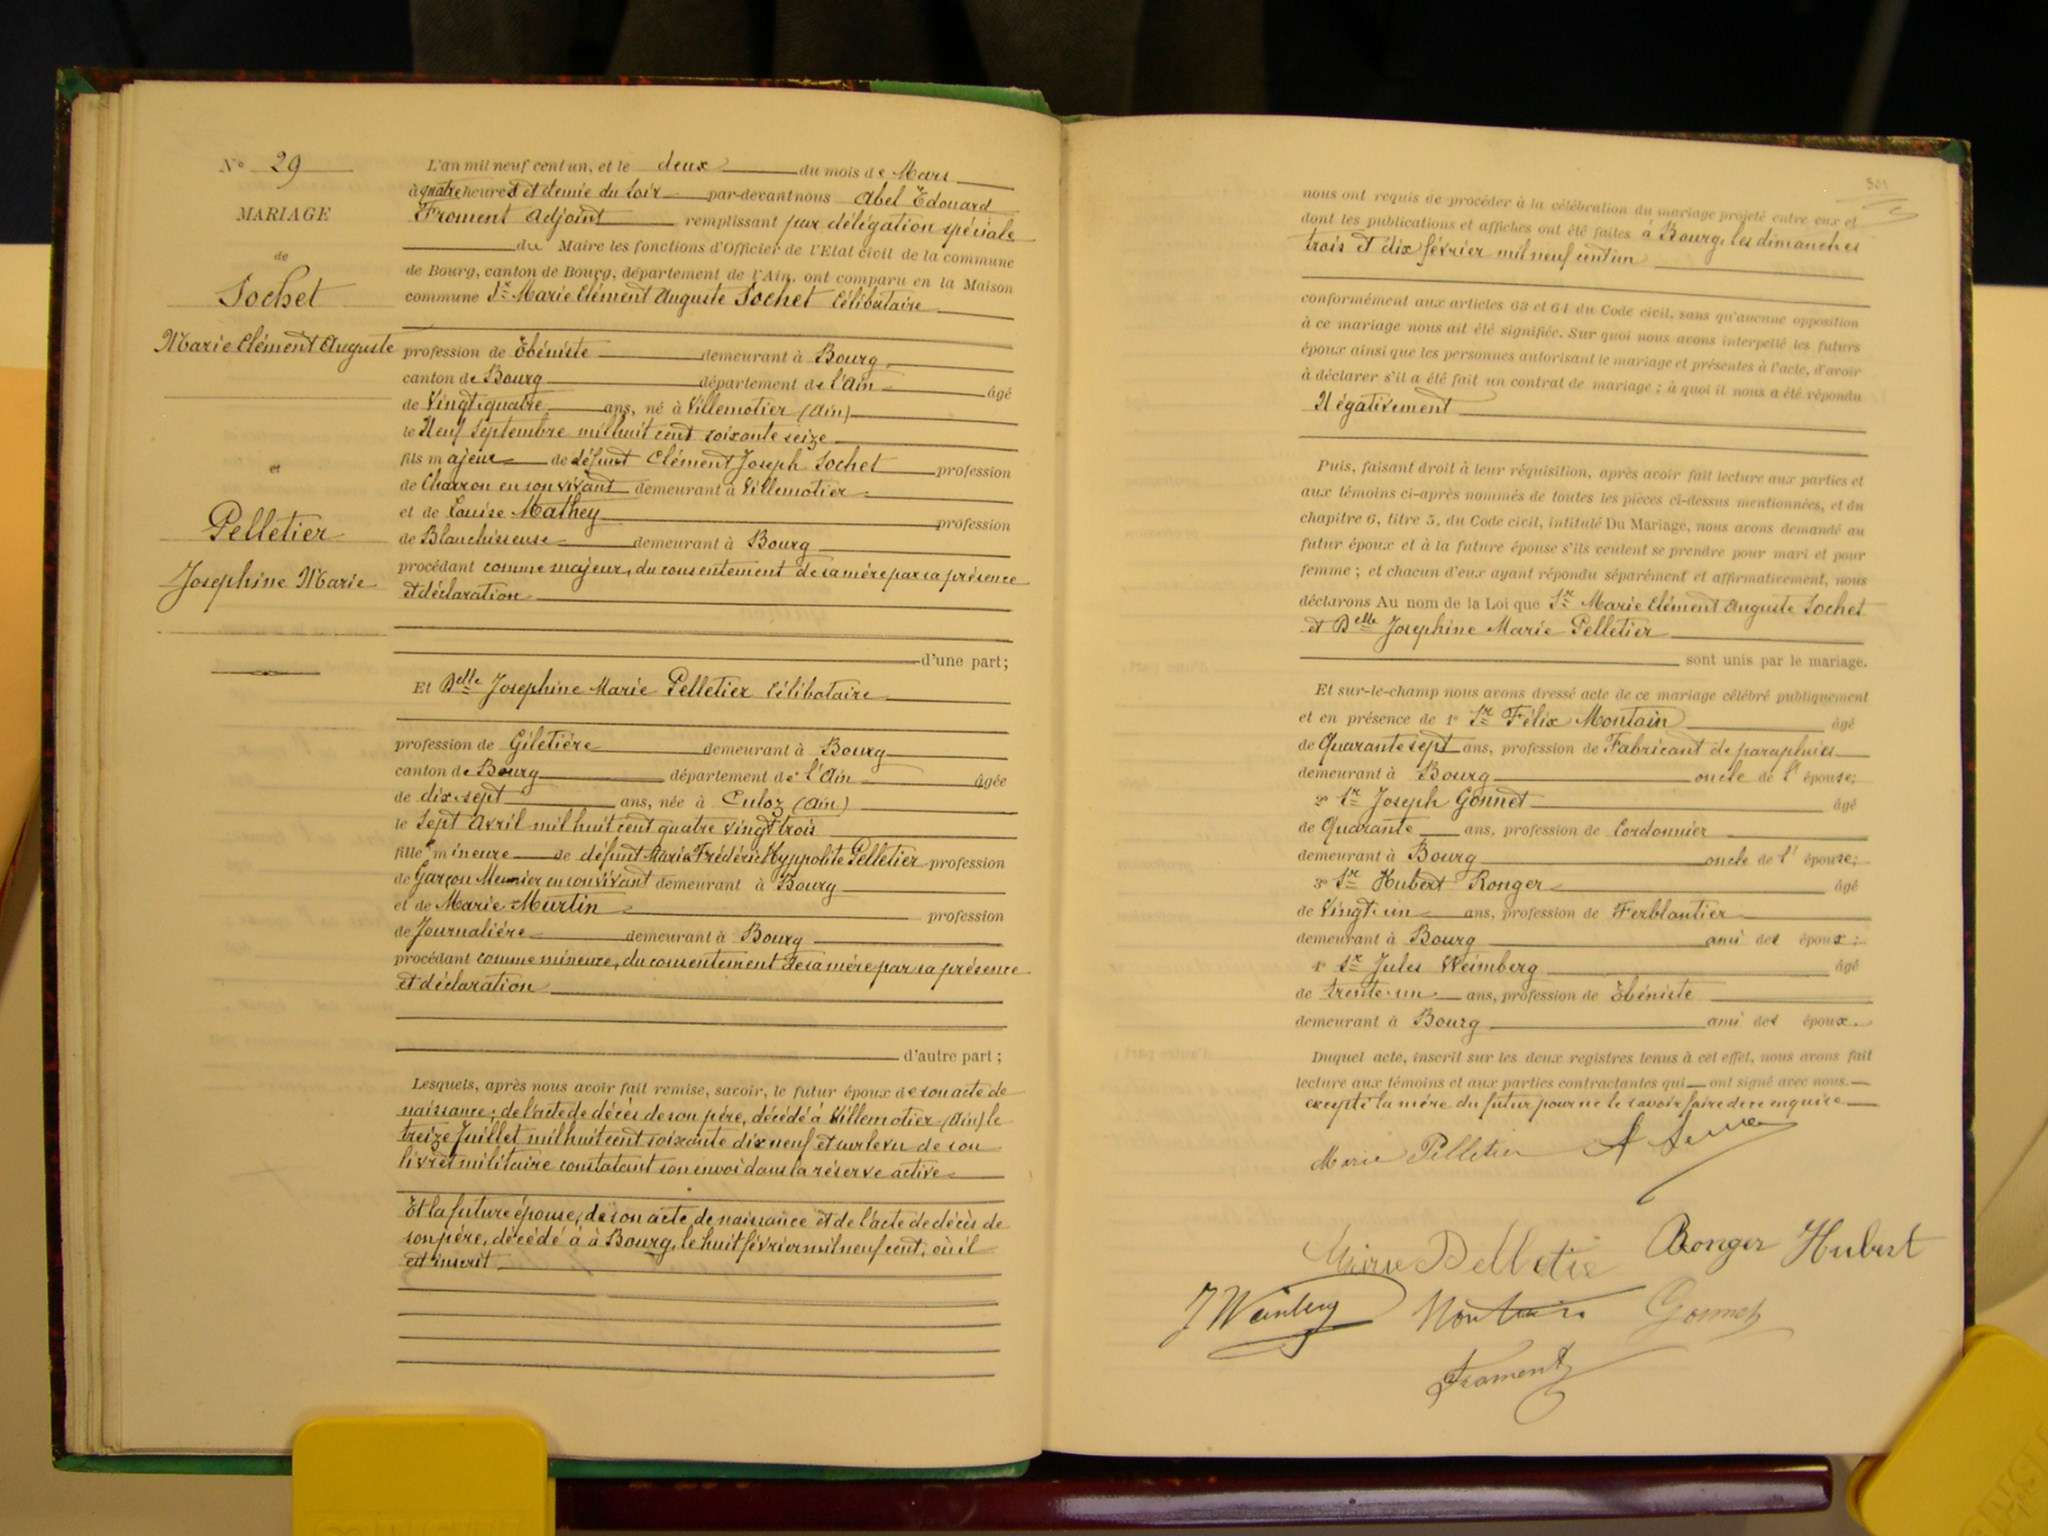 N° 29
MARIAGE
de
Sochet
Marie Clément Auguste
et
Pelletier
Josephine Marie
L'an mil neuf cent un, et le deux du mois de Mars
à quatre heures et demie du soir par-devant nous Abel Edouard
Froment Adjoint remplissant par délégation spéciale
du Maire les fonctions d'Officier de l'Etat civil de la commune
de Bourg, canton de Bourg, département de l'Ain, ont comparu en la Maison
commune Sr Marie Clément Auguste Sochet Célibataire
profession de Ebéniste demeurant à Bourg
canton de Bourg département de l'Ain âgé
de Vingt quatre ans, né à Villemotier (Ain)
le Neuf Septembre mil huit cent soixante seize
fils majeur de défunt Clément Joseph Sochet profession
de Charron en son vivant demeurant à Villemotier
et de Louise Mathey profession
de Blanchisseuse demeurant à Bourg
procédant comme majeur, du consentement de sa mère par sa présence
et déclaration
d'une part;
Et Delle Josephine Marie Pelletier Célibataire
profession de Giletière demeurant à Bourg
canton de Bourg département de l'Ain âgée
de dix sept ans, née à Culoz (Ain)
le Sept Avril mil huit cent quatre vingt trois
fille mineure de défunt Marie Frédéric Hyppolite Pelletier profession
de Garçon Meunier en son vivant demeurant à Bourg
et de Marie Murtin profession
de Journalière demeurant à Bourg
procédant comme mineure, du consentement de sa mère par sa présence
et déclaration
d'autre part;
Lesquels, après nous avoir fait remise, savoir, le futur époux de son acte de
naissance; de l'acte de décès de son père, décédé à Villemotier (Ain) le
treize Juillet mil huit cent soixante dix neuf et sur le vu de son
livret militaire constatant son envoi dans la réserve active
Et la future épouse, de son acte de naissance et de l'acte de décès de
son père, décédé à à Bourg, le huit février mil neuf cent, où il
est inscrit
501
nous ont requis de procéder à la célébration du mariage projeté entre eux et
dont les publications et affiches ont été faites à Bourg, les dimanches
trois et dix février mil neuf cent un
conformément aux articles 63 et 64 du Code civil, sans qu'aucune opposition
à ce mariage nous ait été signifiée. Sur quoi nous avons interpellé les futurs
époux ainsi que les personnes autorisant le mariage et présentes à l'acte, d'avoir
à déclarer s'il a été fait un contrat de mariage; à quoi il nous a été répondu
Négativement
Puis, faisant droit à leur réquisition, après avoir fait lecture aux parties et
aux témoins ci-après nommés de toutes les pièces ci-dessus mentionnées, et du
chapitre 6, titre 5, du Code civil, intitulé Du Mariage, nous avons demandé au
futur époux et à la future épouse s'ils veulent se prendre pour mari et pour
femme; et chacun d'eux ayant répondu séparément et affirmativement, nous
déclarons Au nom de la Loi que Sr Marie Clément Auguste Sochet
et Delle Josephine Marie Pelletier
sont unis par le mariage.
Et sur-le-champ nous avons dressé acte de ce mariage célébré publiquement
et en présence de 1° Sr Félix Montain âgé
de Quarante sept ans, profession de Fabricant de parapluies
demeurant à Bourg oncle de l'épouse;
2° Sr Joseph Gonnet âgé
de Quarante ans, profession de Cordonnier
demeurant à Bourg oncle de l'épouse;
3° Sr Hubert Ronger âgé
de Vingt-un ans, profession de Ferblantier
demeurant à Bourg ami des époux;
4° Sr Jules Weimberg âgé
de trente-un ans, profession de Ebéniste
demeurant à Bourg ami des époux.
Duquel acte, inscrit sur les deux registres tenus à cet effet, nous avons fait
lecture aux témoins et aux parties contractantes qui ont signé avec nous.
excepté la mère du futur pour ne le savoir faire de ce enquise
Marie Pelletier
Pelletier Ronger Hubert
J Weinberg Montain Gonnet
Froment